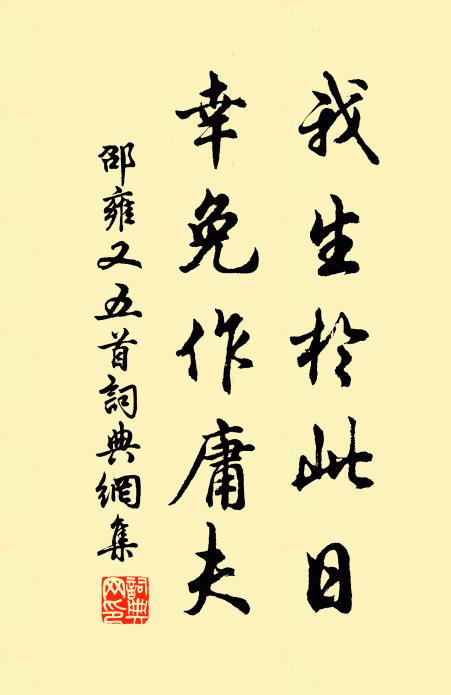 我生於此日
幸免作庸夫
邵雍又五首詞典網集
詞典网印